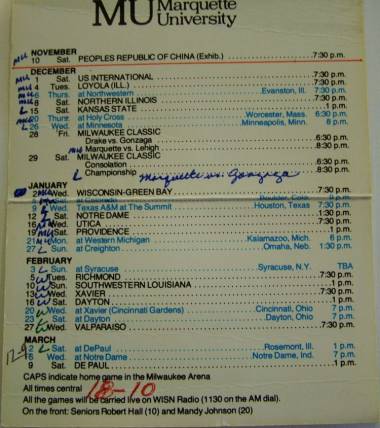 MU Marquette University
NOVEMBER
MU 10 Sat. PEOPLES REPUBLIC OF CHINA (Exhib.) 7:30 p.m.
DECEMBER
MU 1 Sat. US INTERNATIONAL 7:30 p.m.
MU 4 Tues. LOYOLA (ILL.) 7:30 p.m.
MU 6 Thurs. at Northwestern Evanston, Ill. 7:30 p.m.
MU 8 Sat. NORTHERN ILLINOIS 7:30 p.m.
L 15 Sat. KANSAS STATE 1 p.m.
MU 20 Thur. at Holy Cross Worcester, Mass. 6:30 p.m.
L 26 Wed. at Minnesota Minneapolis, Minn. 8 p.m.
28 Fri. MILWAUKEE CLASSIC
Drake vs. Gonzaga 6:30 p.m.
MU Marquette vs. Lehigh 8:30 p.m.
29 Sat. MILWAUKEE CLASSIC
Consolation 6:30 p.m.
L Championship Marquette vs. Gonzaga 8:30 p.m.
JANUARY
2 MU Wed. WISCONSIN-GREEN BAY 7:30 p.m.
5 Sat. at Colorado Boulder, Colo.
9 L Wed. Texas A&M at The Summit Houston, Texas 7:30 p.m.
12 L Sat. NOTRE DAME 1:30 p.m.
16 Wed. UTICA 7:30 p.m.
19 MU Sat. PROVIDENCE 1 p.m.
21 MU Mon. at Western Michigan Kalamazoo, Mich. 6 p.m.
27 L Sun. at Creighton Omaha, Neb. 1:30 p.m.
FEBRUARY
3 L Sun. at Syracuse Syracuse, N.Y. TBA
5 W Tues. RICHMOND 7:30 p.m.
10 W Sun. SOUTHWESTERN LOUISIANA 1 p.m.
13 W Wed. XAVIER 7:30 p.m.
16 W Sat. DAYTON 1 p.m.
20 W Wed. at Xavier (Cincinnati Gardens) Cincinnati, Ohio 7 p.m.
23 L Sat. at Dayton Dayton, Ohio 7 p.m.
27 W Wed. VALPARAISO 7:30 p.m.
MARCH
2 L Sat. at DePaul Rosemont, Ill. 1 p.m.
6 Wed. at Notre Dame Notre Dame, Ind. 7 p.m.
9 Sat. DE PAUL 1 p.m.
CAPS indicate home game in the Milwaukee Arena
All times central 18-10
All the games will be carried live on WISN Radio (1130 on the AM dial).
On the front: Seniors Robert Hall (10) and Mandy Johnson (20)